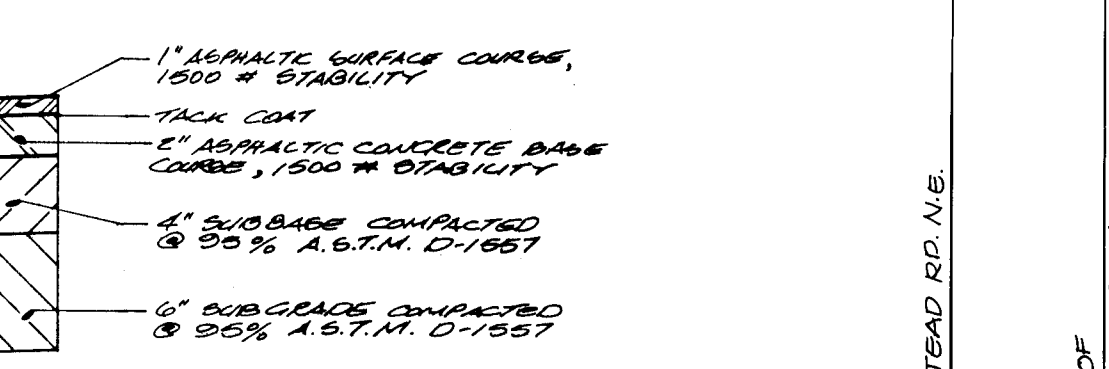 1" ASPHALTIC SURFACE COURSE,
1500 # STABILITY
TACK COAT
2" ASPHALTIC CONCRETE BASE
COURSE, 1500 # STABILITY
4" SUBBASE COMPACTED
@ 95% A.S.T.M. D-1557
6" SUBGRADE COMPACTED
@ 95% A.S.T.M. D-1557
TEAD RD. N.E.
OF